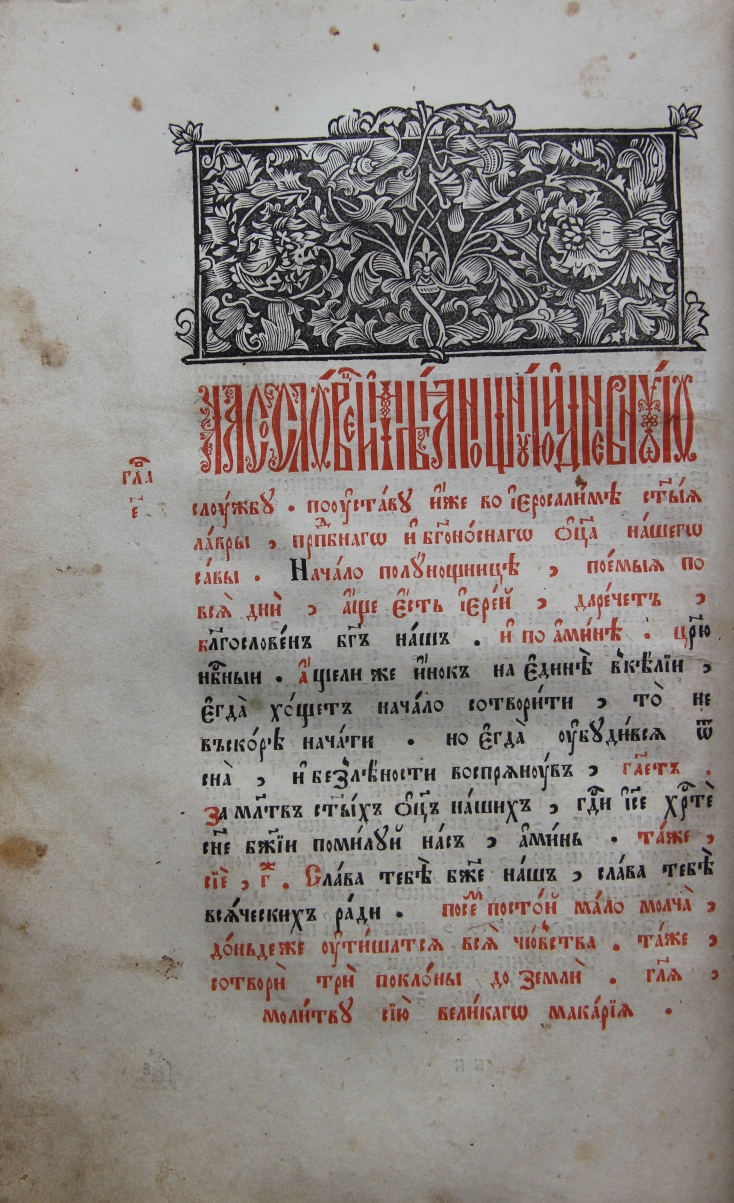 ЧАСОСЛОВЕЦ ИМѢЯИ НОЩНУЮ И ДНЕВНУЮ
гл҃а
є҃
слоу́жбꙋ . по оу҆ста́вꙋ и҆́же во і҆єросали́мѣ ст҃ы́ѧ
ла́вры , прпⷣбнагѡ и҆ бг҃оно́снагѡ ѻ҆ц҃а̀ на́шегѡ
са́вы . Нача́ло полꙋ́нощницѣ , пое́мыѧ по
всѧ̀ днѝ , а҆́ще є҆́сть і҆єре́й , да рече́тъ ,
бл҃гослове́нъ бг҃ъ на́шъ . и҆ по а҆ми́нѣ . цр҃ю̀
нбⷭ҇ныи . а҆́щели же и҆́нокъ на є҆ди́нѣ в̾ке́лїи ,
є҆гда̀ хо́щетъ нача́ло сотвори́ти , то̀ не
въско́рѣ нача́ти . но є҆гда̀ оу҆бꙋди́всѧ ѿ
сна̀ , и҆ без̾лѣ́ности воспрѧноу́въ , гл҃етъ .
За мл҃твъ ст҃ы́хъ ѻ҆ц҃ъ на́шихъ , гдⷭ҇и і҆с҃е хрⷭ҇тѐ
сн҃е бж҃їи поми́лꙋй на́съ , а҆ми́нь . та́же ,
сїѐ , г҃ⷤ . Сла́ва тебѣ̀ бж҃е на́шъ , сла́ва тебѣ̀
всѧ́ческихъ ра́ди . посе́мⷨ посто́й ма́ло молча̀ ,
до́ньдеже оу҆ти́шатсѧ всѧ̀ чю́вства . та́же ,
сотворѝ трѝ покло́ны до землѝ . гл҃ѧ ,
моли́твꙋ сїю̀ вели́кагѡ мака́рїѧ .